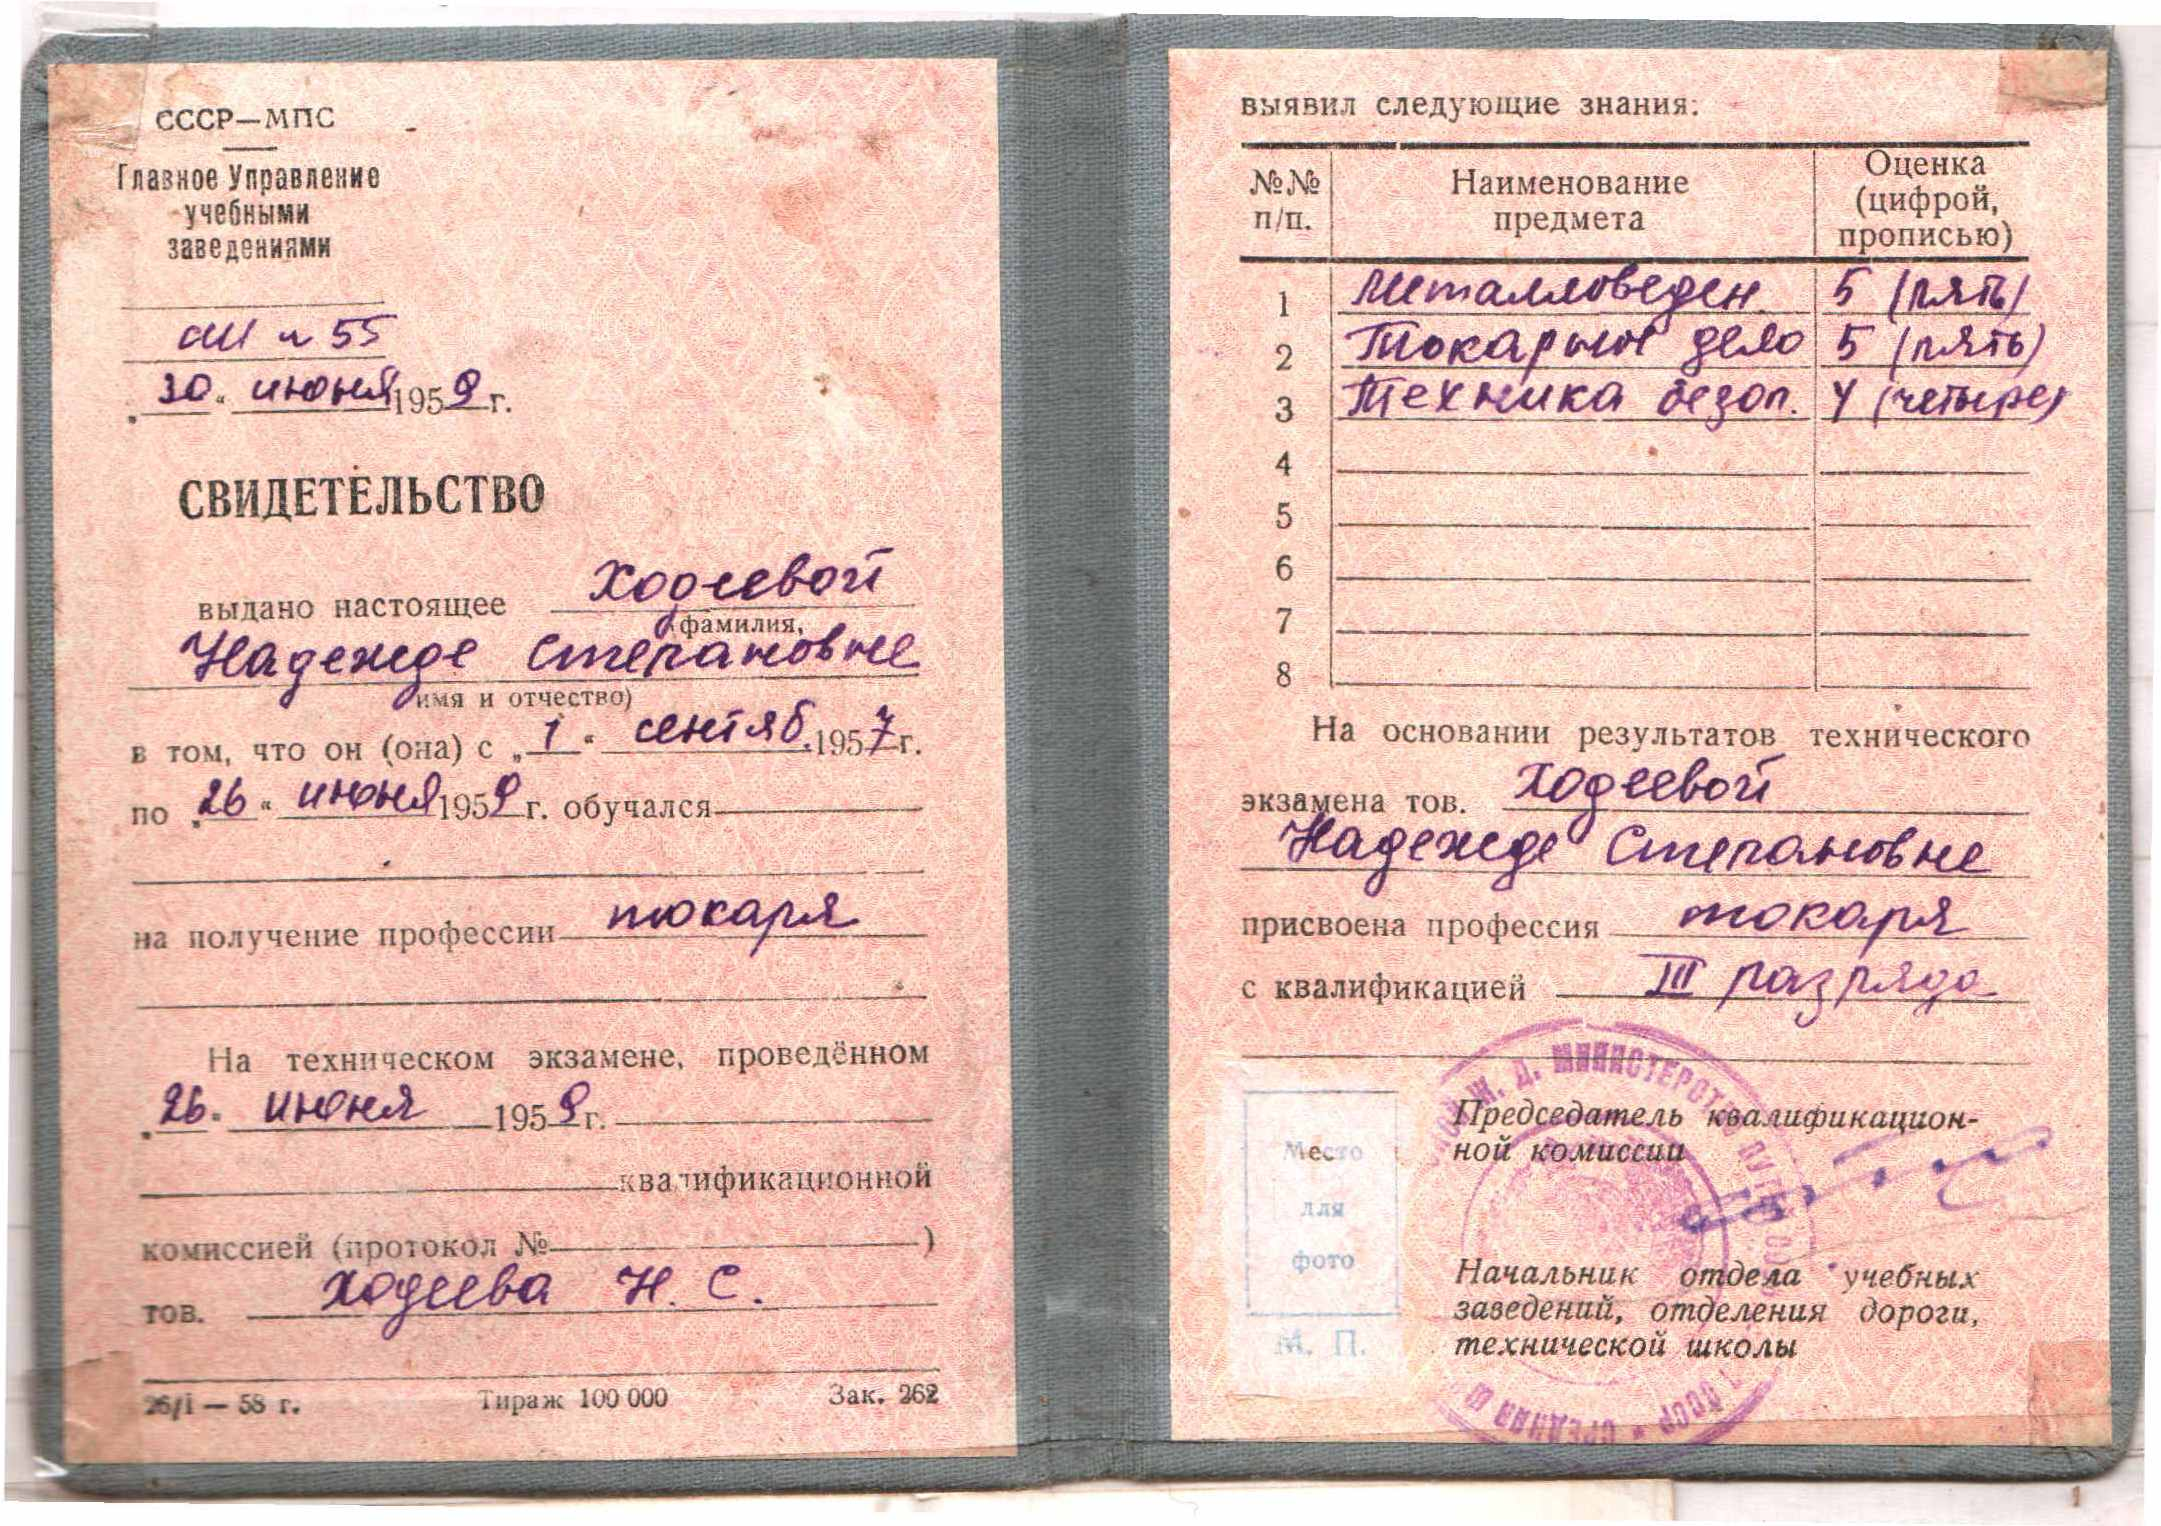 СССР—МПС
Главное Управление
учебными
заведениями
СШ № 55
„30“ июня 1959 г.
СВИДЕТЕЛЬСТВО
выдано настоящее Ходеевой
(фамилия,
Надежде Степановне
имя и отчество)
в том, что он (она) с „1“ сентяб. 1957 г.
по „26“ июня 1959 г. обучался
на получение профессии токаря
На техническом экзамене, проведённом
„26“ июня 1959 г.
квалификационной
комиссией (протокол № )
тов. Ходеева Н. С.
26/I — 58 г. Тираж 100 000 Зак. 262
выявил следующие знания:
№№ п/п. Наименование предмета Оценка (цифрой, прописью)
1 Металловеден. 5 (пять)
2 Токарное дело 5 (пять)
3 Техника безоп. 4 (четыре)
4
5
6
7
8
На основании результатов технического
экзамена тов. Ходеевой
Надежде Степановне
присвоена профессия токаря
с квалификацией III разряда
Председатель квалификацион-
ной комиссии
Место
для
фото
М. П.
Начальник отдела учебных
заведений, отделения дороги,
технической школы
Ж. Д. МИНИСТЕРСТВ ПУТ
СССР * СРЕДНЯЯ Ш